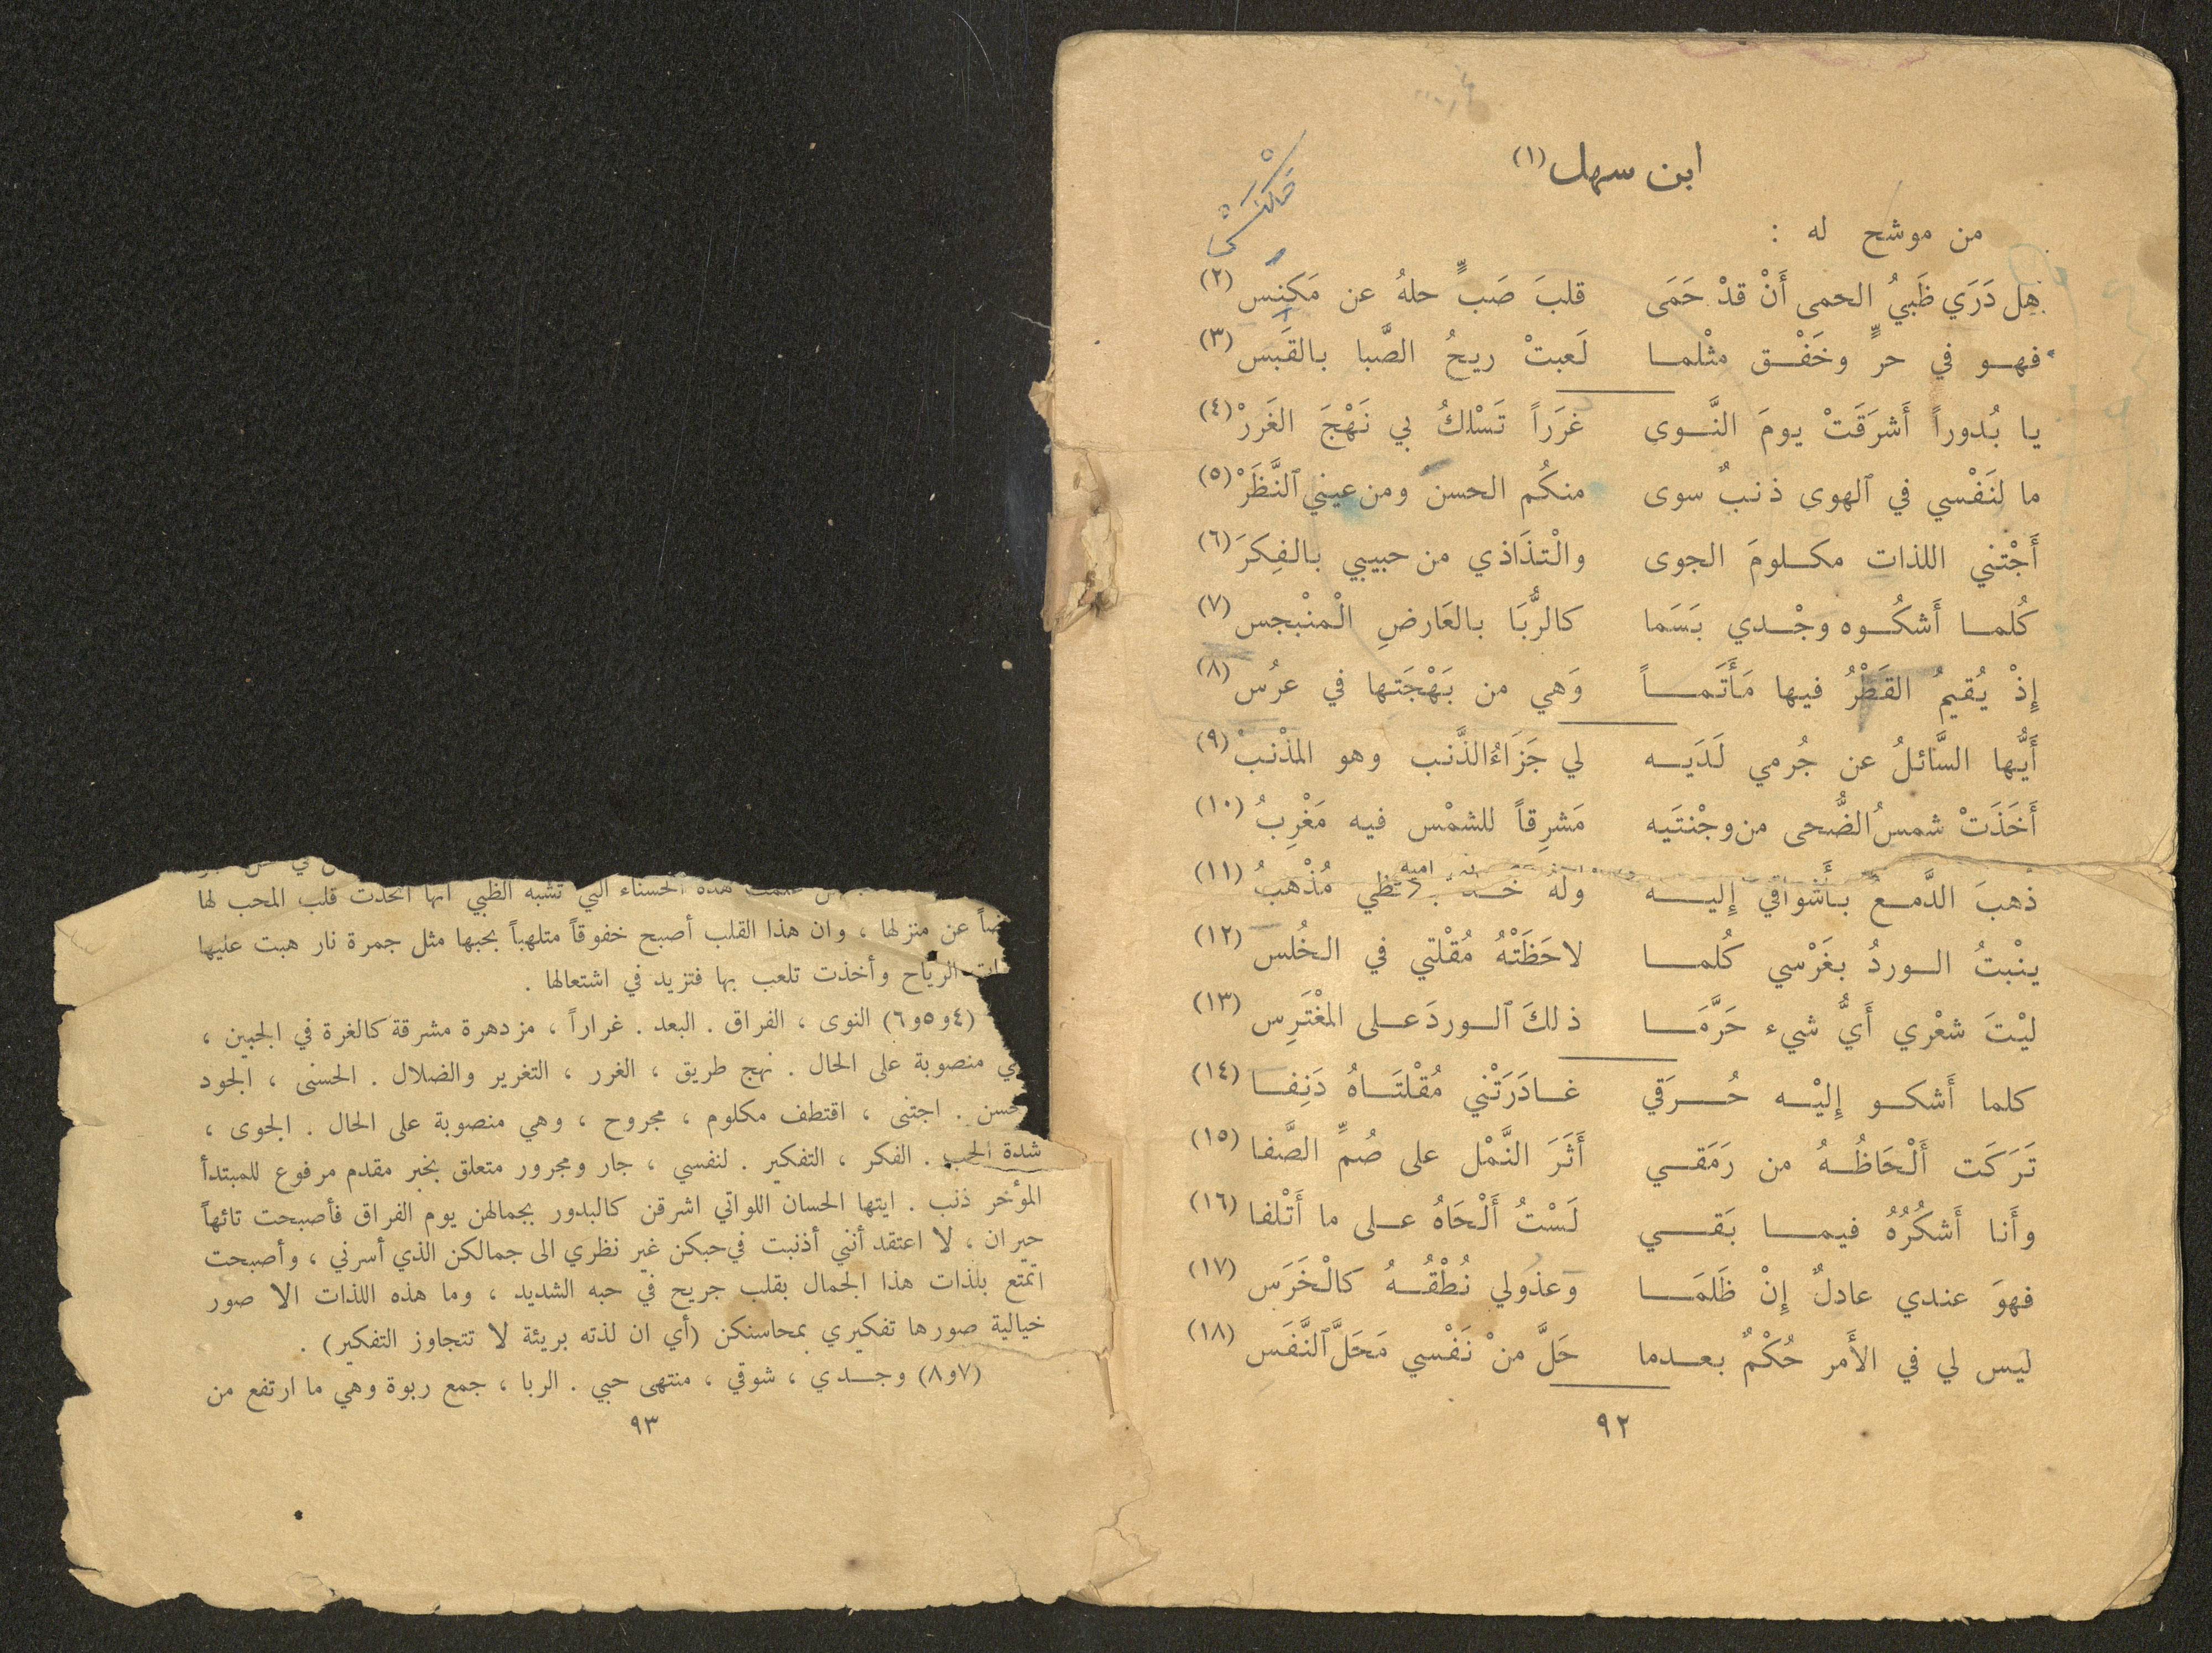 ابن سهل (١)
من موشح له :
هل دَرَي ظَبيُ الحمى أَنْ قدْ حَمَى قلبَ صَبٍّ حلهُ عن مَكنِس (٢)
فهو في حرٍّ وخَفْق مثْلما لَعبتْ ريحُ الصَّبا بالقَبَس (٣)
يا بُدوراً أَشرَقَتْ يومَ النَّوى غرَراً تَسْلكُ بي نَهْجَ الغَررْ (٤)
ما لنَفْسي في ٱلهوى ذنبٌ سوى منكُم الحسنْ ومن عيني ٱلنَّظَرْ (٥)
أَجْتني اللذات مكلومَ الجوى والْتذَاذي من حبيبي بالفِكرَ (٦)
كُلما أَشكُوه وجْدي بَسَما كالرُّبَا بالعَارضِ الْمنْبجس (٧)
إِذْ يُقيمُ القَطْرُ فيها مَأَتَماً وَهي من بَهْجَتها في عرُس (٨)
أَيُّها السَّائلُ عن جُرمي لَدَيه لي جَزَاءُ الذَّنب وهو المذْنبْ (٩)
أَخَذَتْ شمسُ الضُّحى من وجْنتَيه مَشرِقاً للشمْس فيه مَغْرِبُ (١٠)
ذُهبَ الدَّمعُ بأَشواقي إِليه وله خد مُذْهبُ (١١)
ينْبتُ الوردُ بغَرْسي كُلما لاحَظَتْهُ مُقْلتي في الخُلس (١٢)
ليْتَ شعْري أَيُّ شيء حَرَّمَا ذلكَ ٱلوردَ على المغْتَرِس (١٣)
كلما أَشكو إِليْه حُرَقي غادَرَتْني مُقْلتَاهُ دَنِفا (١٤)
تَرَكَت أَلْحَاظُهُ من رَمَقي أَثَرَ النَّمْل على صُمِّ الصَّفا (١٥)
وأَنا أَشكُرُهُ فيما بَقي لَسْتُ أَلْحَاهُ على ما أَتْلفا (١٦)
فهوَ عندي عادلٌ إِنْ ظَلمَا وعذولي نُطْقُهُ كالْخَرَس (١٧)
ليس لي في الأَمر حُكْمٌ بعدما حَلَّ منْ نَفْسي مَحَلَّ ٱلنَّفَس (١٨)
٩٢
هذه الحسناء التي تشبه الظبي انها اتخذت قلب المحب لها
عن منزلها ، وان هذا القلب أصبح خفوقاً متلهباً بحبها مثل جمرة نار هبت عليها
الرياح وأخذت تلعب بها فتزيد في اشتعالها .
(٤و٥و٦) النوى ، الفراق . البعد . غراراً ، مزدهرة مشرقة كالغرة في الجبين ،
منصوبة على الحال . نهج طريق ، الغرر ، التغرير والضلال . الحسنى ، الجود
اجتنى ، اقتطف مكلوم ، مجروح ، وهي منصوبة على الحال . الجوى ،
شدة الحب . الفكر ، التفكير . لنفسي ، جار ومجرور متعلق بخبر مقدم مرفوع للمبتدأ
المؤخر ذنب . ايتها الحسان اللواتي اشرقن كالبدور بجمالهن يوم الفراق فأصبحت تائهاً
حيران ، لا اعتقد أنني أذنبت في حبكن غير نظري الى جمالكن الذي أسرني ، وأصبحت
اتمتع بلذات هذا الجمال بقلب جريح في حبه الشديد ، وما هذه اللذات الا صور
خيالية صورها تفكيري بمحاسنكن (أي ان لذته بريئة لا تتجاوز التفكير) .
(٧و٨) وجدي ، شوقي ، منتهى حبي . الربا ، جمع ربوة وهي ما ارتفع من
٩٣